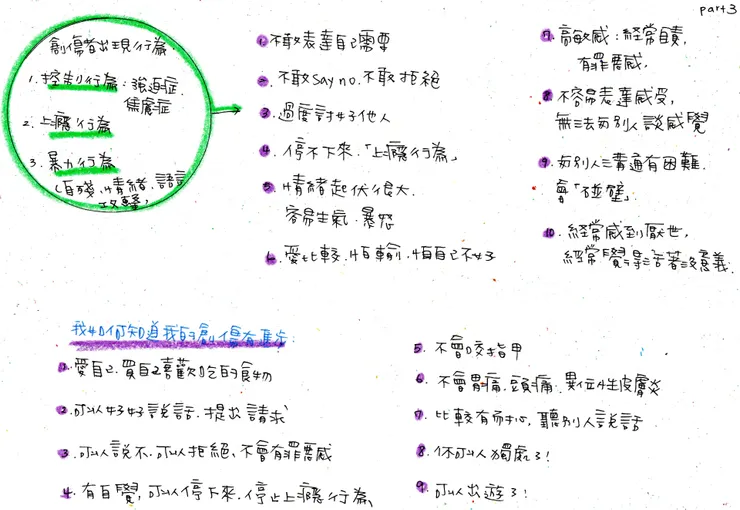 part 3
創傷者出現行為
1. 控制行為：強迫症.
焦慮症
2. 上癮行為
3. 暴力行為
(自殘、情緒、語言
攻擊)
1. 不敢表達自己需要
2. 不敢 say no. 不敢拒絕
3. 過度討好他人
4. 停不下來.「上癮行為」
5. 情緒起伏很大.
容易生氣. 暴怒
6. 愛比較. 怕輸. 怕自己不好
7. 高敏感：經常自責,
有罪惡感.
8. 不容易表達感受,
無法與別人談感覺
9. 與別人溝通有困難.
會「碰壁」
10. 經常感到厭世,
經常覺得活著沒意義.
我如何知道我的創傷有進步:
1. 愛自己. 買自己喜歡吃的食物
2. 可以好好說話. 提出請求
3. 可以說不. 可以拒絕、不會有罪惡感
4. 有自覺, 可以停下來. 停止上癮行為、
5. 不會咬指甲
6. 不會胃痛. 頭痛. 異位性皮膚炎
7. 比較有耐心, 聽別人說話
8. 你可以獨處了!
9. 可以出遊了!